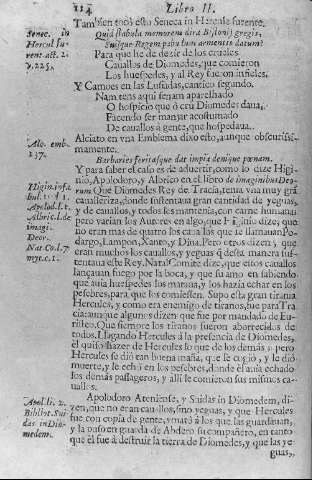 114 Libro II.
Tambien tocò esto Seneca in Hercule furente.
Senec. in Hercul fu rent. act. 2. v. 225.
Quid stabula memorem dira Bistonij gregis,
Suisque Regem pabulum armentis datum?
Para que he de dezir de los crueles
Cauallos de Diomedes, que comieron
Los huespedes, y al Rey fueron infieles.
Y Camoes en las Lusiadas, cantico segundo.
Nam tens aqui sejam aparelhado
O hospicio que ò cru Diomedes daua,
Facendo ser manjar acostumado
De cauallos à gente, que hospedaua.
Alciato en vna Emblema dixo esto, aunque obscurissi-
mamente.
Alc. emb. 237.
Barbaries feritasque dat impia demique pœnam.
Y para saber el caso es de aduertir, como lo dize Higi-
nio, Apolodoro, y Albrico en el libro de imaginibus Deo-
rum Que Diomedes Rey de Tracia, tenia vna muy grã
caualleriza, donde sustentaua gran cantidad de yeguas,
y de cauallos, y todos los mantenia, con carne humana:
pero varian los Autores en algo, que Higinio dize; que
no eran mas de quatro los caua los que se llamauan Po-
dargo, Lampon, Xanto, y Dina. Pero otros dizen; que
eran muchos los cauallos, y yeguas q̃ desta manera sus-
tentaua este Rey. Natal Comite dize, que estos cauallos
lançauan fuego por la boca, y que su amo en sabiendo
que auia huespedes los mataua, y los hazia echar en los
pesebres, para que los comiessen. Supo esta gran tirania
Hercules, y como era enemigo de tiranos, fue para Tra
cia: aunque algunos dizen que fue por mandado de Eu-
risteo. Que siempre los tiranos fueron aborrecidos de
todos. Llegando Hercules à la presencia de Diomedes,
èl quiso hazer de Hercules lo que de los demás: pero
Hercules se dió tan buena maña, que le cogió, y le dió
muerte, y le echò en los pesebres, donde èl auia echado
los demàs passageros, y alli le comieron sus mismos ca-
uallos.
Higin. in fa bul.
Apolod. l. 2.
Albric. l. de imagi. Deor.
Nat Co. l. 7. myt. c. 2.
Apolodoro Ateniense, y Suidas in Diomedem, di-
zen, que no eran cauallos, sino yeguas, y que Hercules
fue con copia de gente, y matò à los que las guardauan,
y las puso en guarda de Abdero su compañero, en tanto
que èl fue à destruir la tierra de Diomedes, y que las ye-
guas,
Apol. li. 2. Bibliot. Sui das in Dio medem.